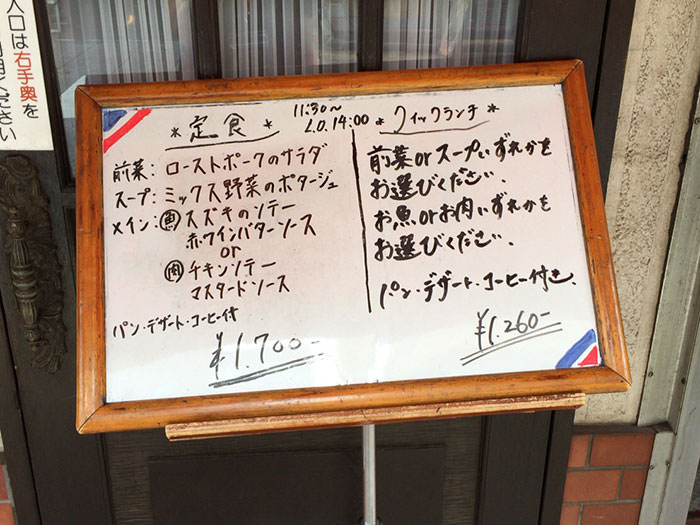 入口は右手奥を
ださい
＊定食＊
11:30〜
L.O.14:00
前菜: ローストポークのサラダ
スープ: ミックス野菜のポタージュ
メイン: 魚 スズキのソテー
赤ワインバターソース
or
肉 チキンソテー
マスタードソース
パン・デザート・コーヒー付
¥1.700-
＊クイックランチ＊
前菜orスープいずれかを
お選びください.
お魚orお肉いずれかも
お選びください.
パン・デザート・コーヒー付き.
¥1.260-